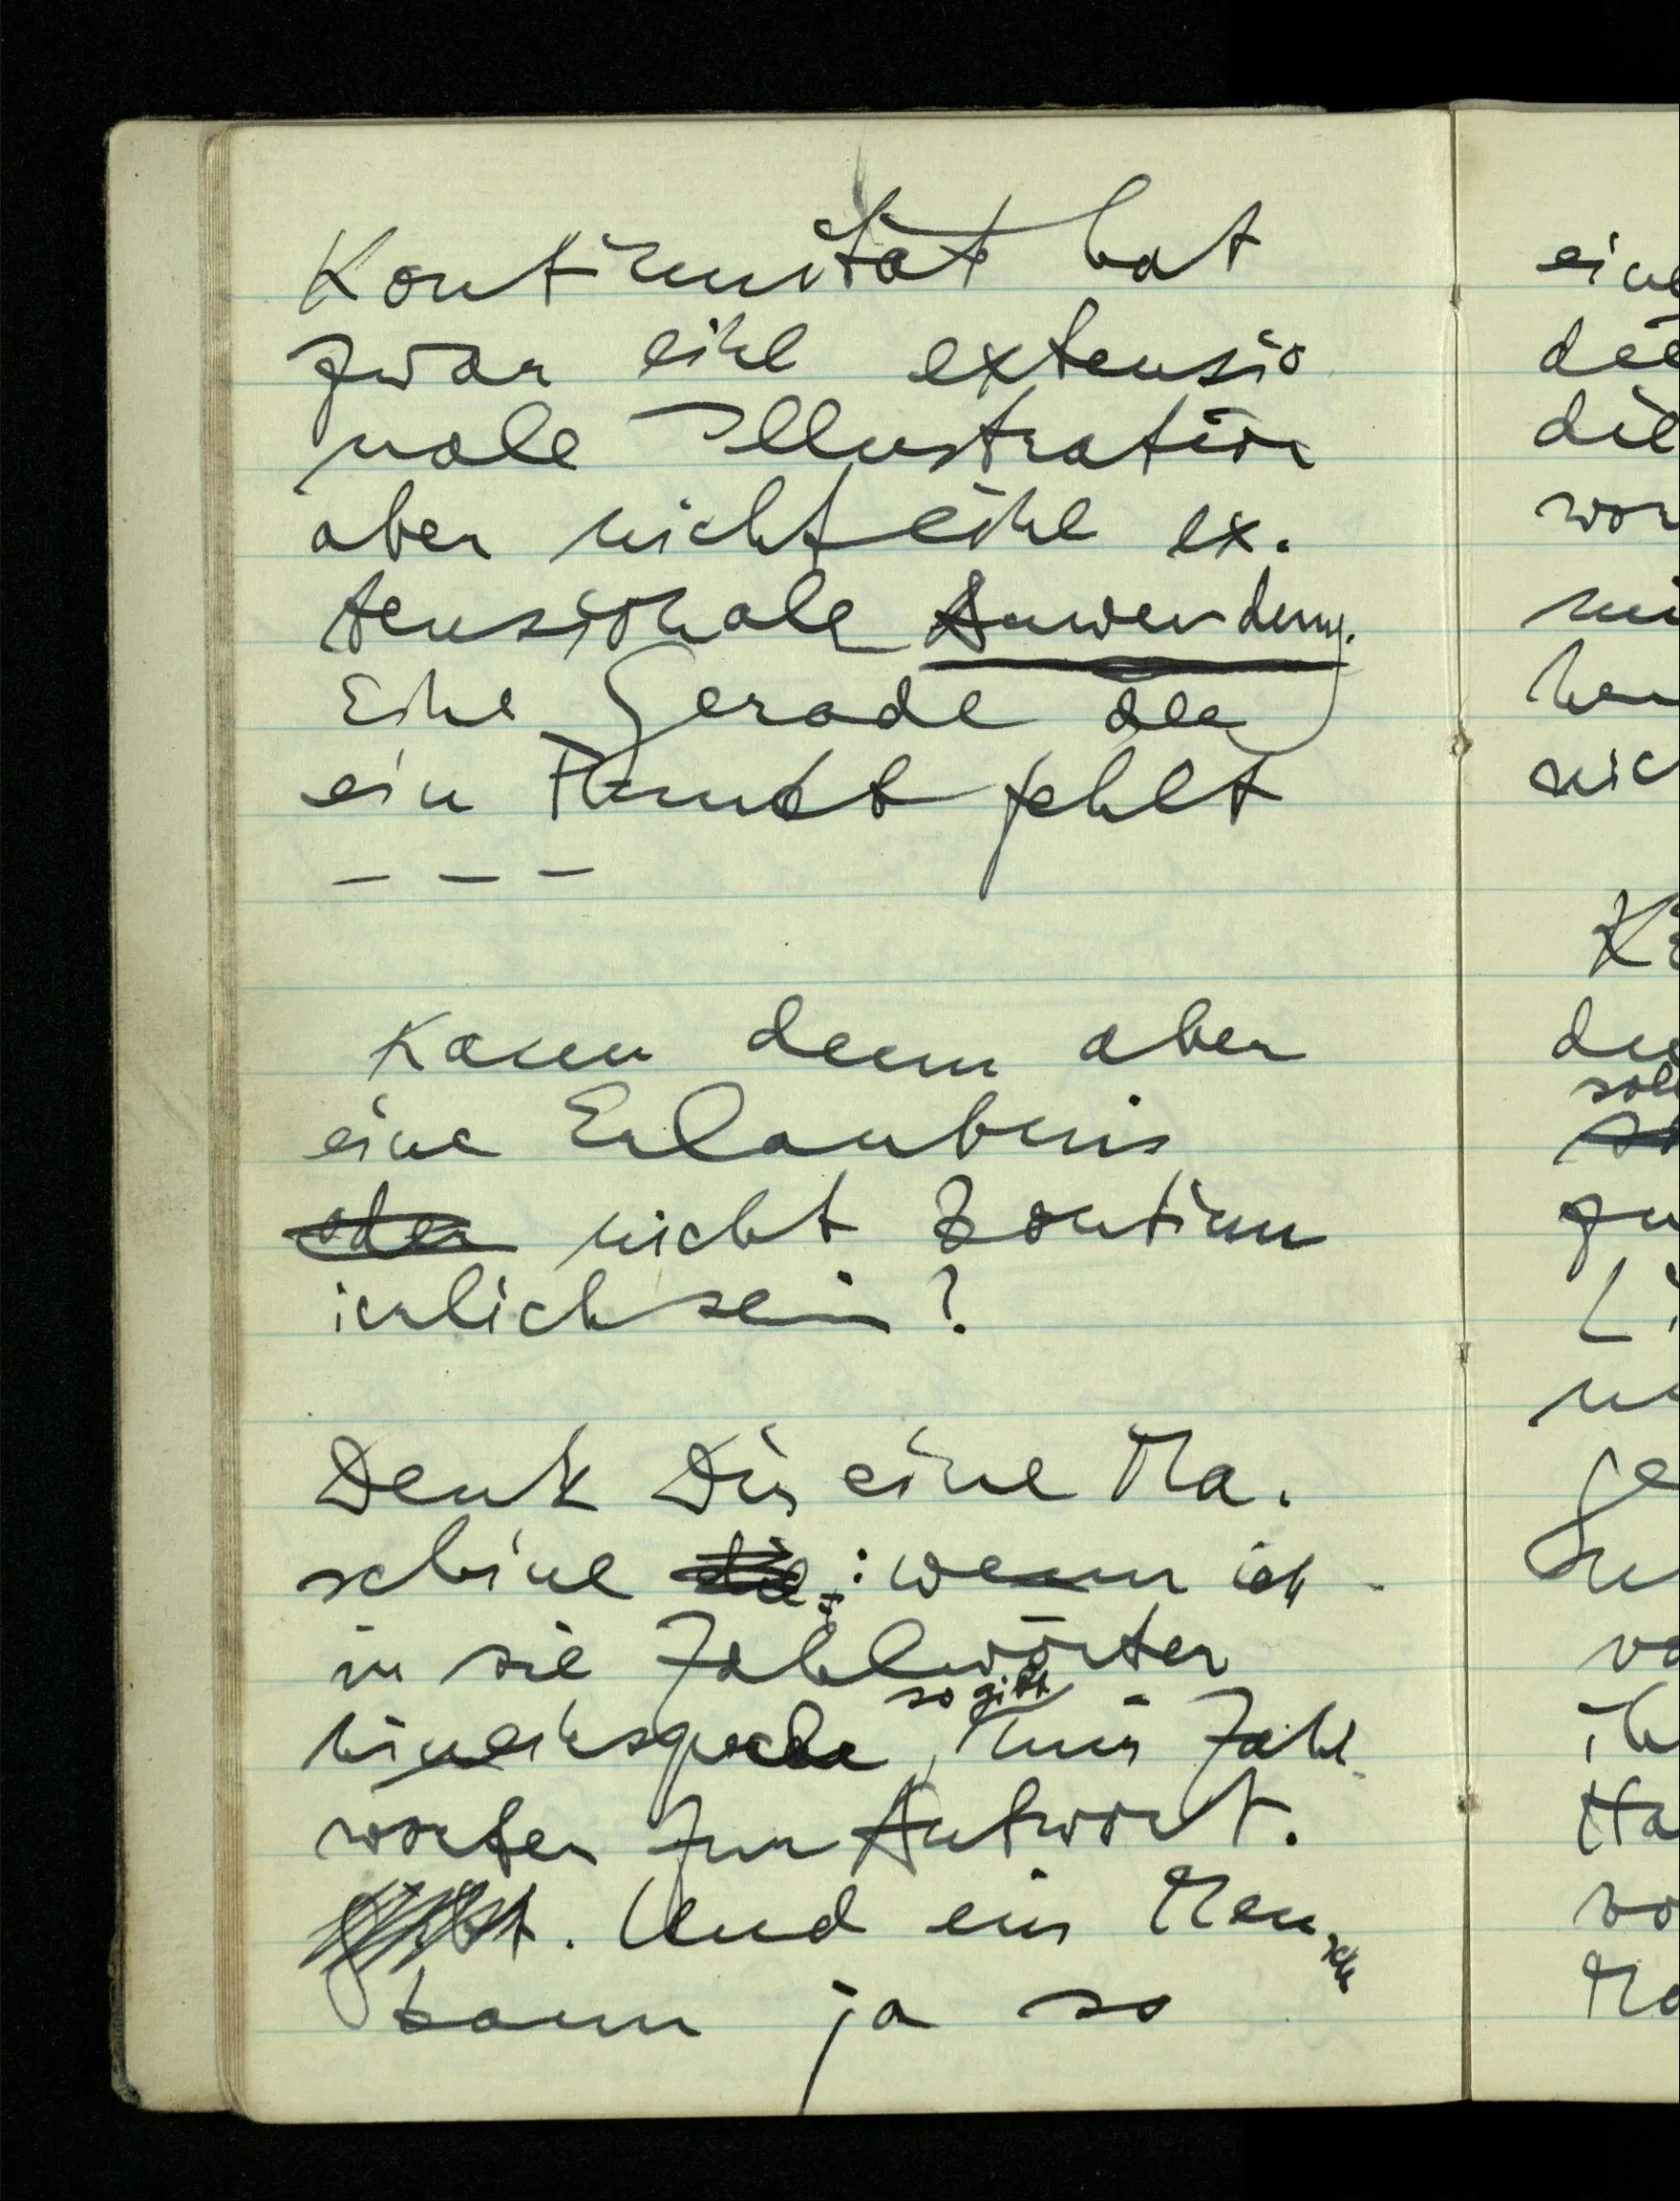 Kontinuität hat
zwar eine extensio
nale Illustration
aber nicht eine ex-
tensionale Anwendung.
Eine Gerade der
ein Punkt fehlt
– – –
Kann denn aber
eine Erlaubnis
oder nicht kontinu
ierlich sein?
Denk Dir eine Ma-
schine die : wenn ich
in sie Zahlwörter
so gibt
hineinspreche, mir Zahl
wörter zur Antwort.
gibt. Und ein Mensch
kann ja so
ein
die
wor
K
sol
zu
ge
vo
ih
Ha
vo
Ma